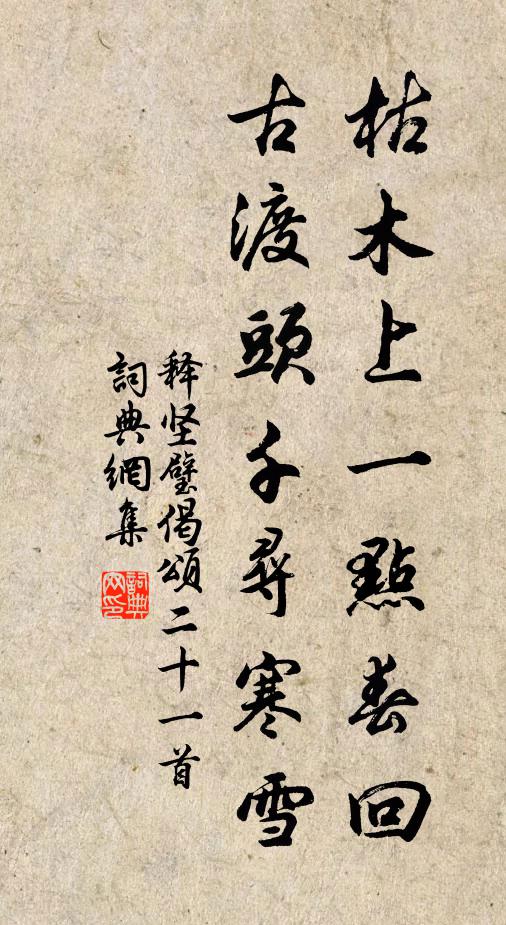 枯木上一點春回
古渡頭千尋寒雪
释坚璧偈頌二十一首
詞典網集
詞典网印